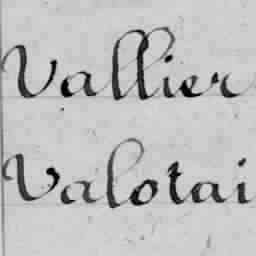 Vallier
Valotai